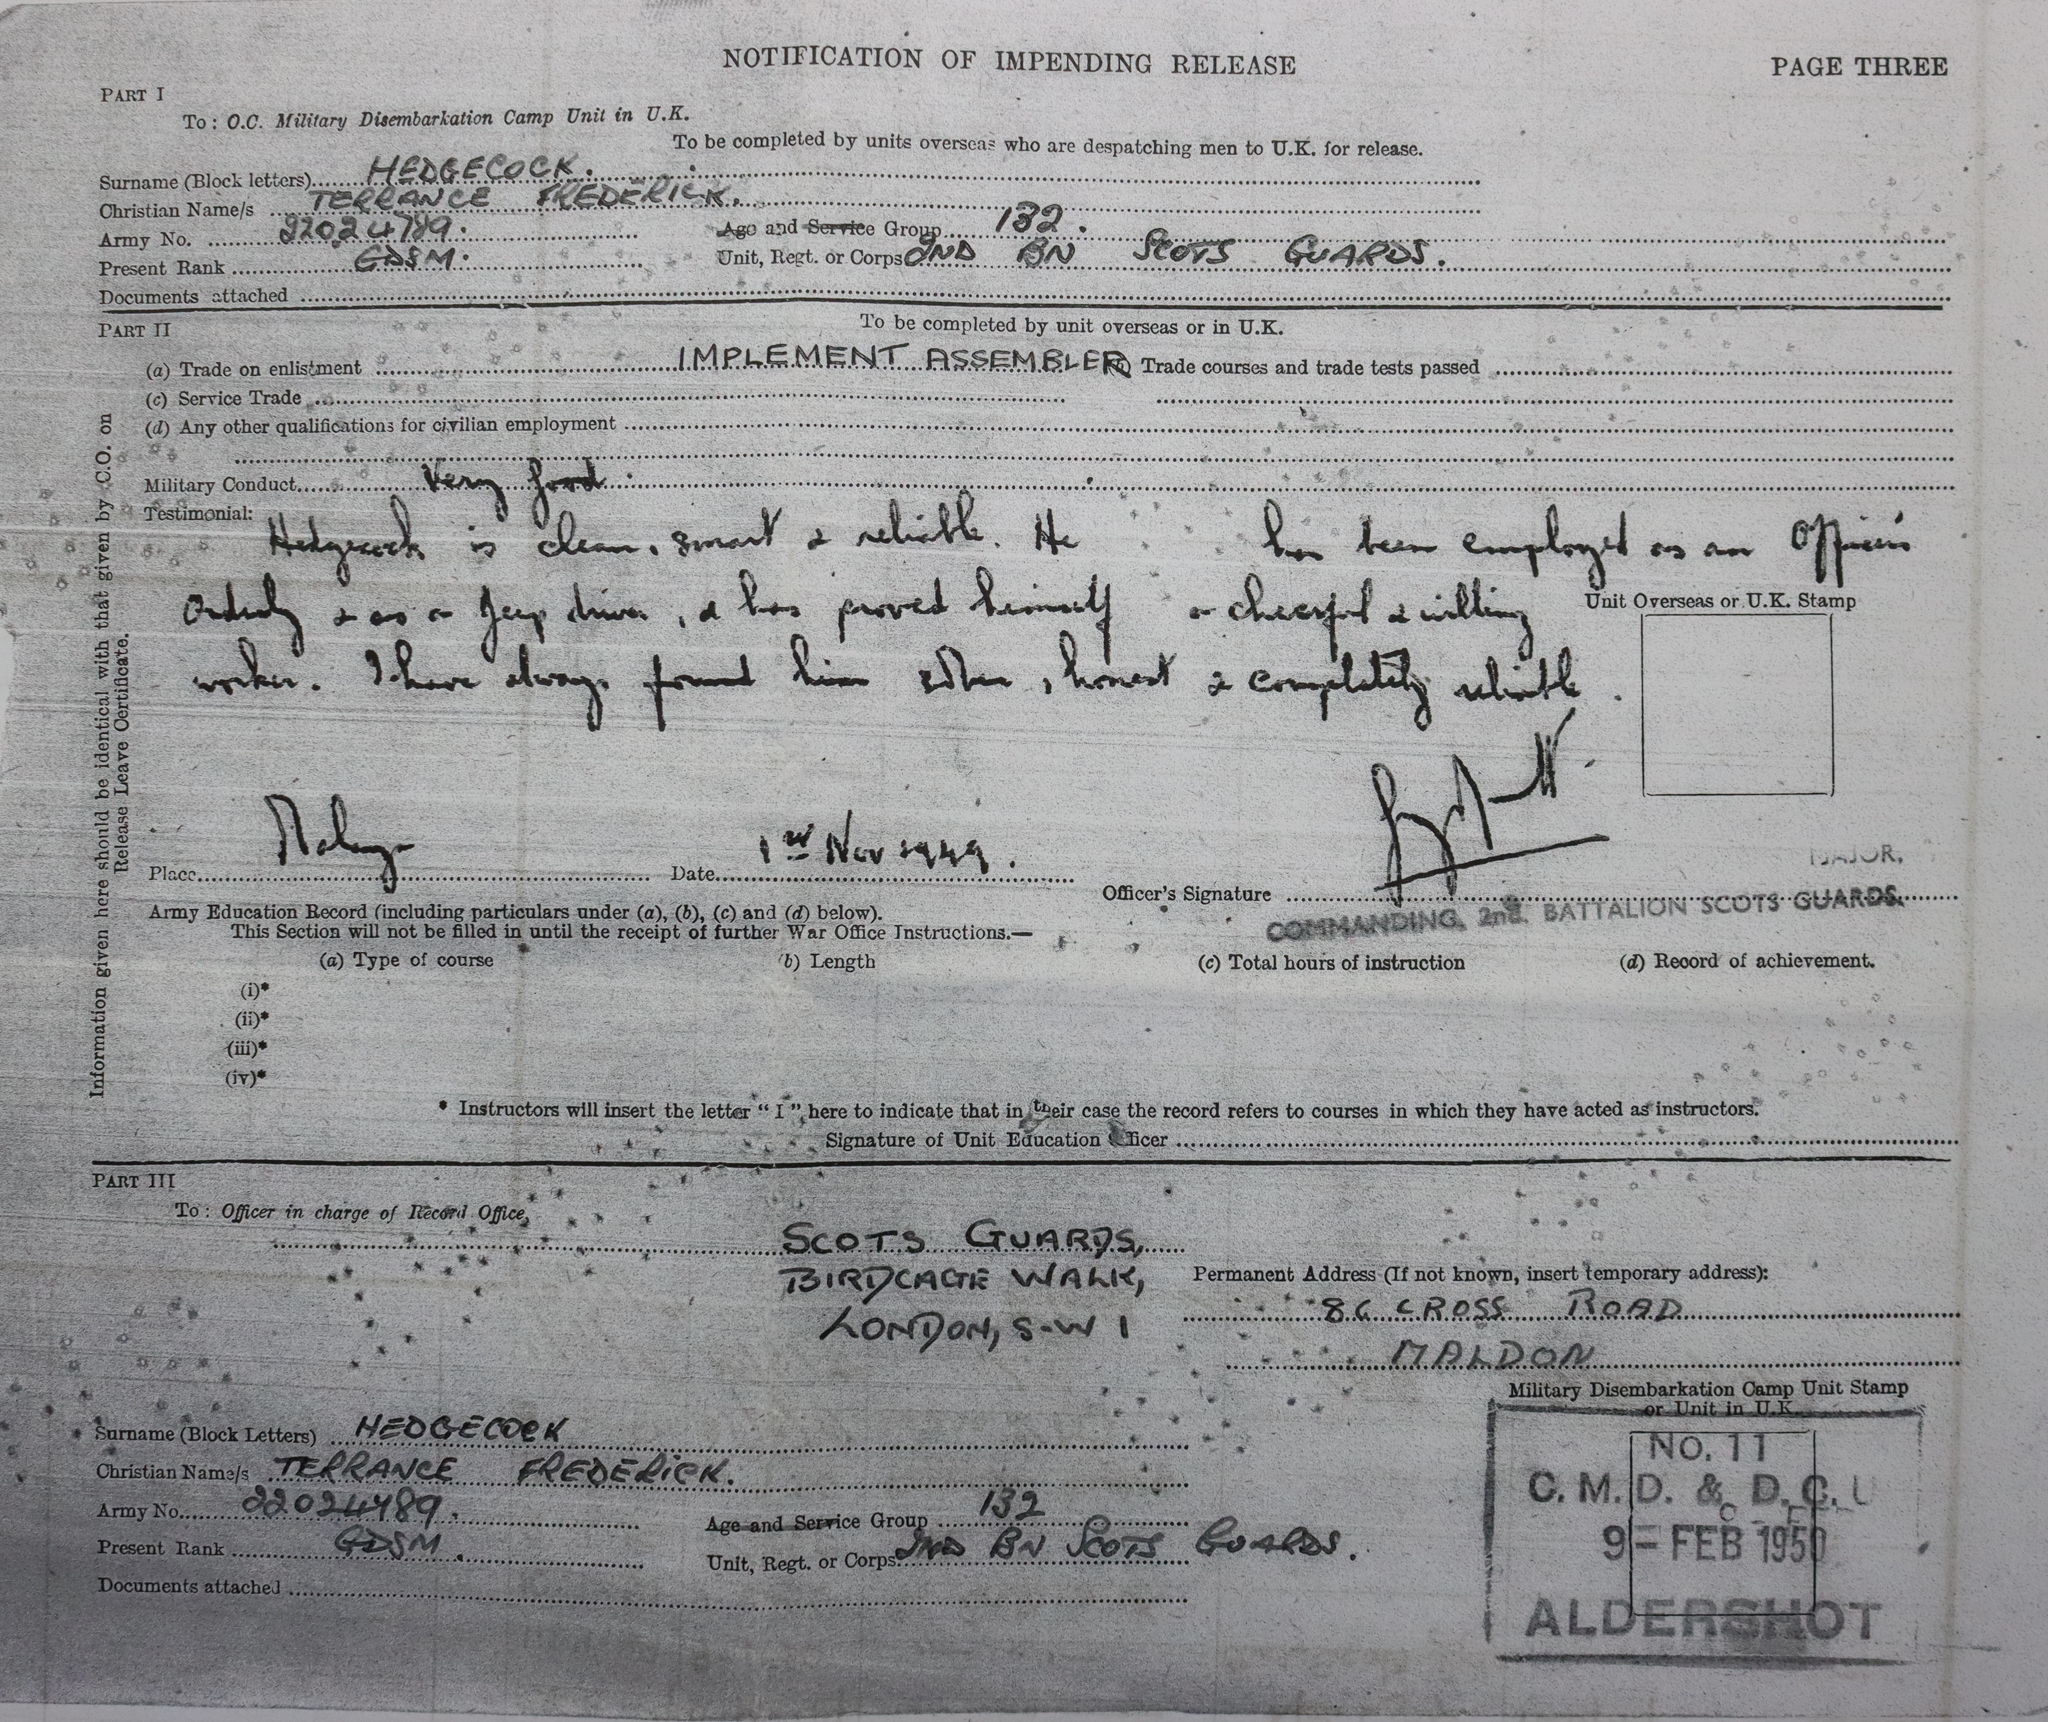 NOTIFICATION OF IMPENDING RELEASE PAGE THREE
PART I
To: O.C. Military Disembarkation Camp Unit in U.K.
To be completed by units overseas who are despatching men to U.K. for release.
Surname (Block letters) HEDGECOCK.
Christian Name/s TERRANCE FREDERICK.
Army No. 22024789. Age and Service Group 132.
Present Rank GDSM. Unit, Regt. or Corps 2ND BN SCOTS GUARDS.
Documents attached
PART II To be completed by unit overseas or in U.K.
(a) Trade on enlistment IMPLEMENT ASSEMBLER (b) Trade courses and trade tests passed
(c) Service Trade
(d) Any other qualifications for civilian employment
Military Conduct Very good.
Testimonial:
Hedgecock is clean, smart & reliable. He has been employed as an Officer's
Orderly & as a Jeep driver, & has proved himself a cheerful & willing
Unit Overseas or U.K. Stamp
worker. I have always found him sober, honest & completely reliable.
Place Malaya Date 1st Nov 1949.
Officer's Signature
MAJOR,
COMMANDING, 2nd. BATTALION SCOTS GUARDS.
Army Education Record (including particulars under (a), (b), (c) and (d) below).
This Section will not be filled in until the receipt of further War Office Instructions.—
(a) Type of course (b) Length (c) Total hours of instruction (d) Record of achievement.
(i)*
(ii)*
(iii)*
(iv)*
* Instructors will insert the letter "I" here to indicate that in their case the record refers to courses in which they have acted as instructors.
Signature of Unit Education Officer
Information given here should be identical with that given by C.O. on
Release Leave Certificate.
PART III
To: Officer in charge of Record Office,
SCOTS GUARDS,
BIRDCAGE WALK,
LONDON, S.W 1
Permanent Address (If not known, insert temporary address):
CROSS ROAD
MALDON
Military Disembarkation Camp Unit Stamp
or Unit in U.K.
Surname (Block Letters) HEDGECOCK
Christian Name/s TERRANCE FREDERICK.
Army No. 22024789. Age and Service Group 132
Present Rank GDSM. Unit, Regt. or Corps 2ND BN SCOTS GUARDS.
Documents attached
NO. 11
C. M. D. & D. C. U
9 - FEB 1950
ALDERSHOT